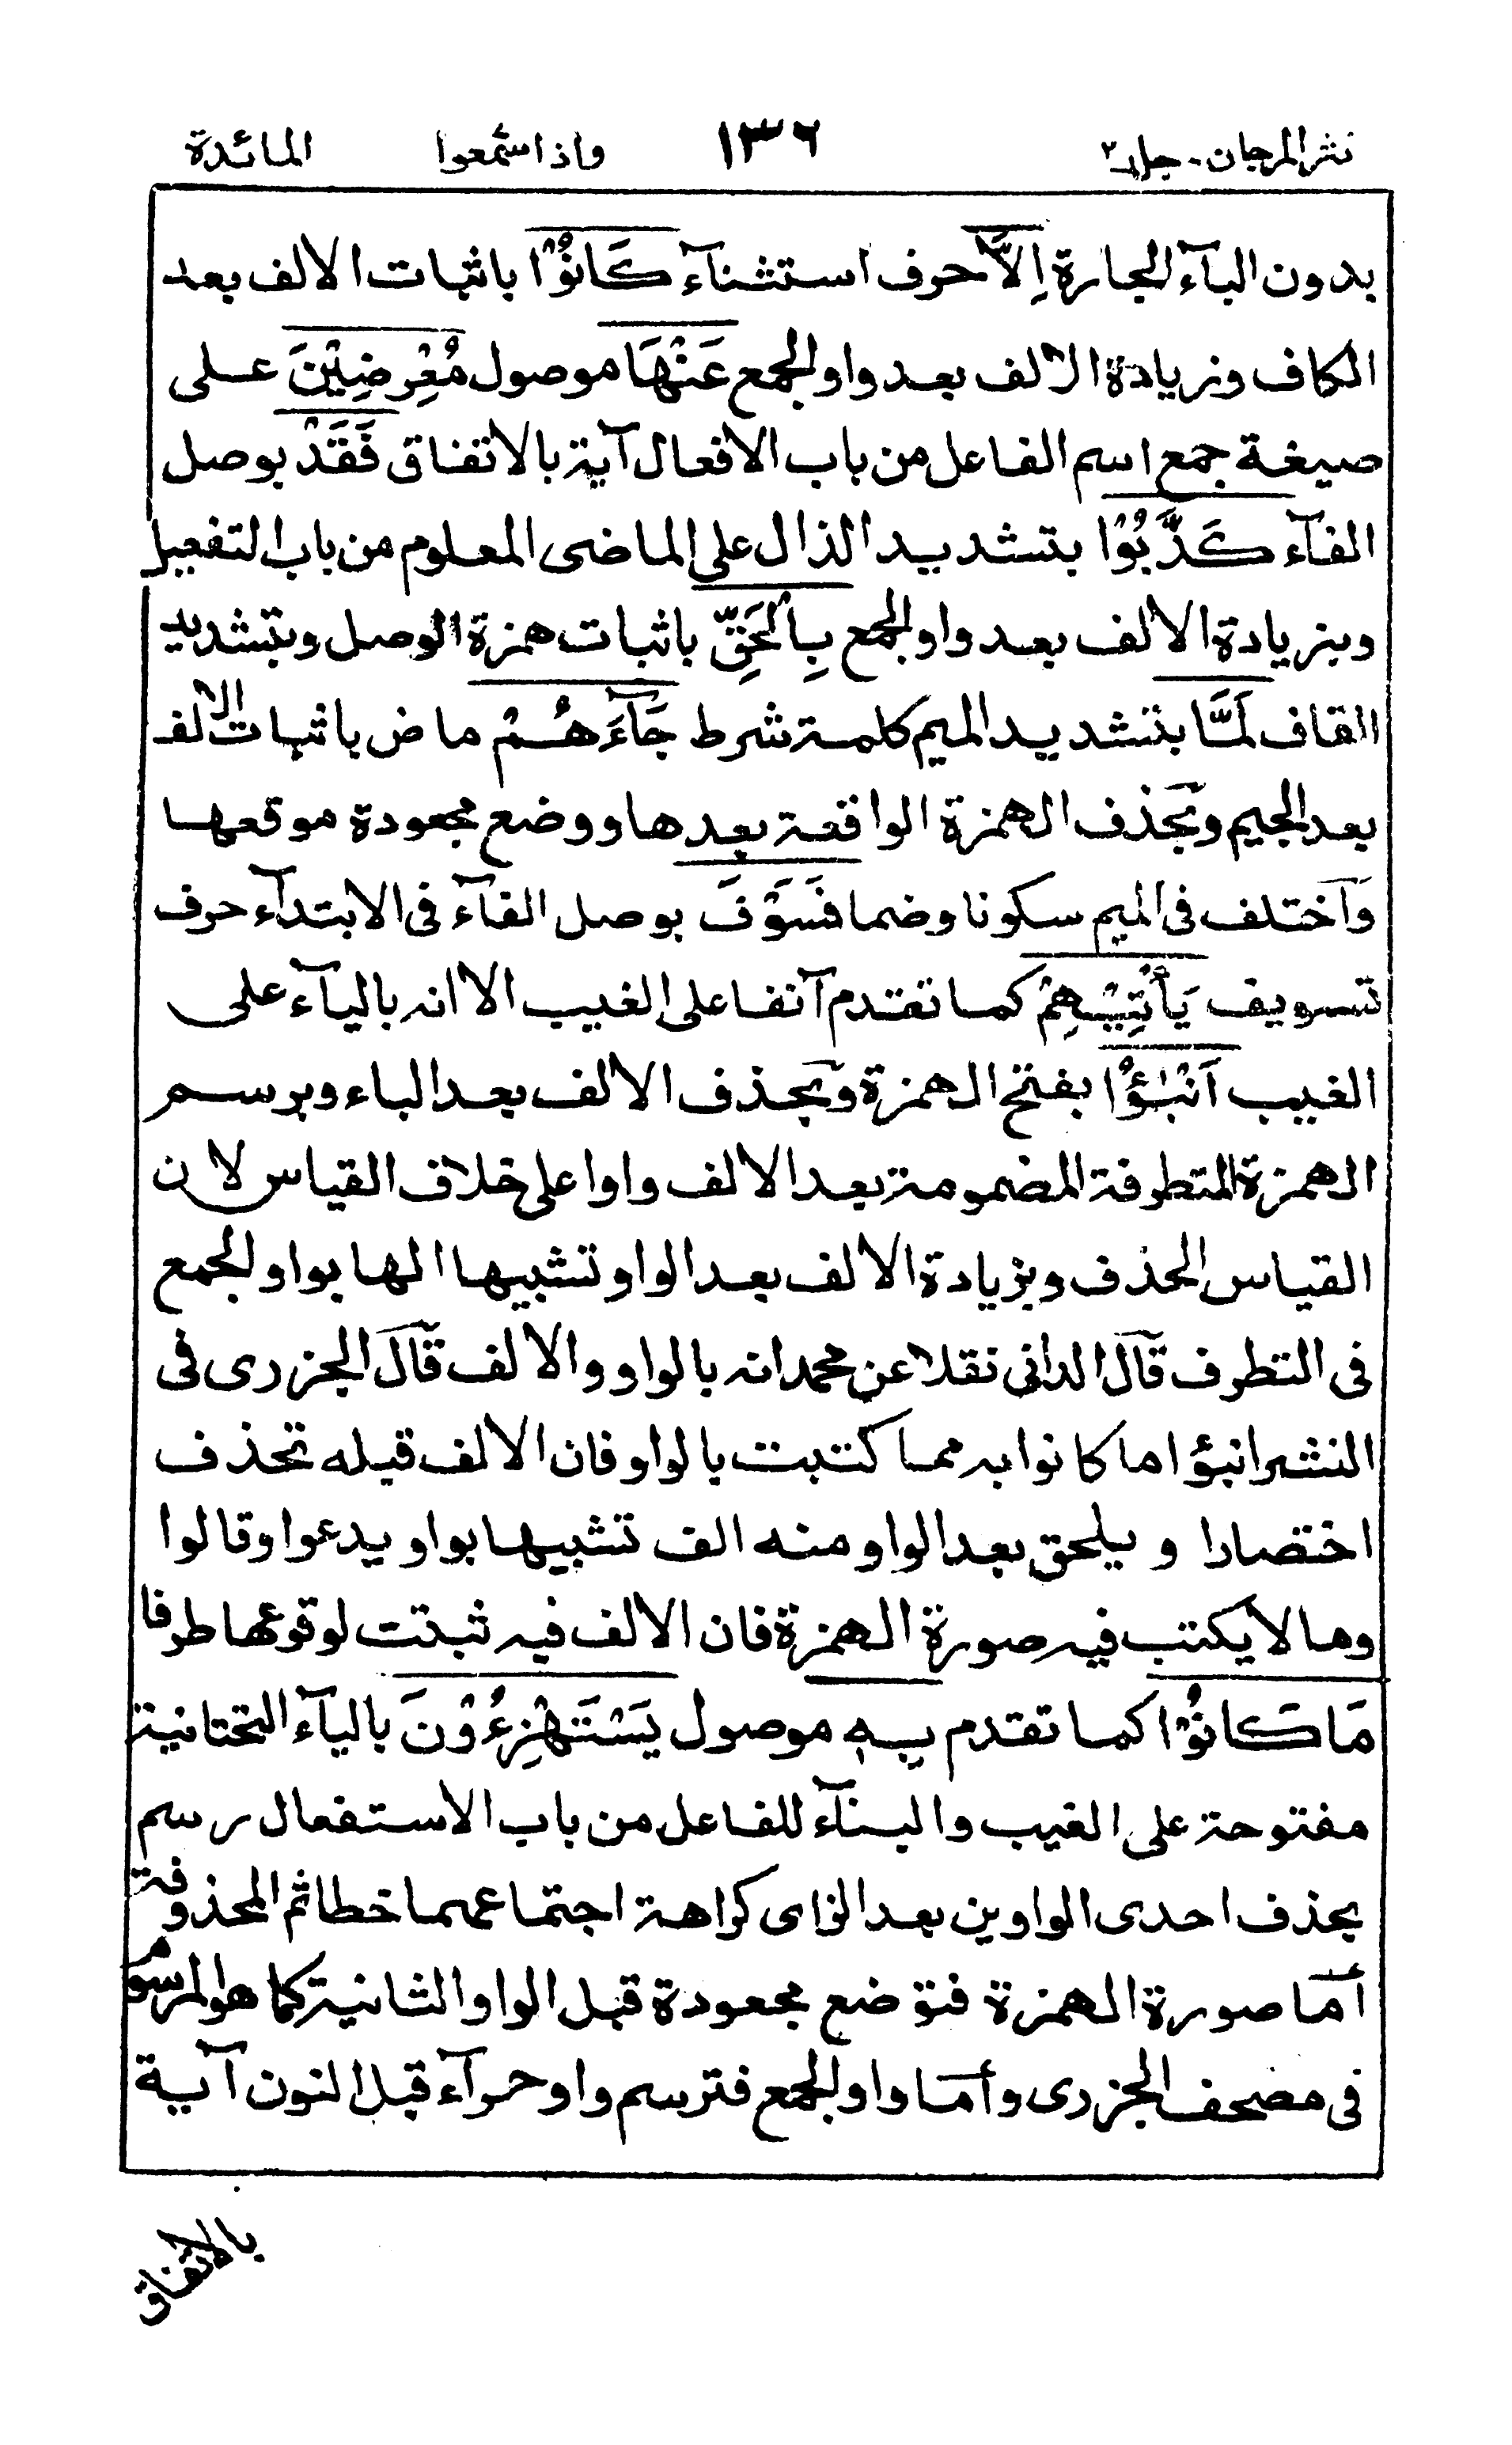 نثر المرجان - جلد ٢ ١٣٦ واذا سمعوا المائدة
بدون البآء الجارة اِلَّا حرف استثنآء كَانُوْا باثبات الالف بعد
الكاف وزيادة الالف بعد واو الجمع عَنْهَا موصول مُعْرِضِيْنَ على
صيغة جمع اسم الفاعل من باب الافعال آية بالاتفاق فَقَدْ بوصل
الفآء كَذَّبُوْا بتشديد الذال على الماضى المعلوم من باب التفعيل
وبزيادة الالف بعد واو الجمع بِالْحَقِّ باثبات همزة الوصل وبتشديد
القاف لَمَّا بتشديد الميم كلمة شرط جَآءَهُمْ ماض باثبات الالف
بعد الجيم وبحذف الهمزة الواقعة بعدها ووضع مجعودة موقعها
وآختلف فى الميم سكونا وضما فَسَوْفَ بوصل الفآء فى الابتدآء حرف
تسويف يَأْتِيْهِمْ كما تقدم آنفا على الغيب الا انه باليآء على
الغيب اَنْبٰؤُا بفتح الهمزة وبحذف الالف بعد الباء وبرسم
الهمزة المتطرفة المضمومة بعد الالف واوا على خلاف القياس لان
القياس الحذف وبزيادة الالف بعد الواو تشبيها لها بواو الجمع
فى التطرف قآل الدانى نقلا عن محمد انه بالواو والالف قآل الجزرى فى
النشر انبؤا ما كانوا به مما كتبت بالواو فان الالف قبله تحذف
اختصارا و يلحق بعد الواو منه الف تشبيها بواو يدعوا وقالوا
وما لا يكتب فيه صورة الهمزة فان الالف فيه ثبتت لوقوعها طرفا
مَا كَانُوْا كما تقدم بِهٖ موصول يَسْتَهْزِءُوْنَ باليآء التحتانية
مفتوحة على الغيب والبنآء للفاعل من باب الاستفعال رسم
بحذف احدى الواوين بعد الزاى كراهة اجتماعهما خطا ثم المحذوفة
أما صورة الهمزة فتوضع مجعودة قبل الواو الثانية كما هو المرسوم
فى مصحف الجزرى وأما واو الجمع فترسم واو حمرآء قبل النون آية
بالاتفاق